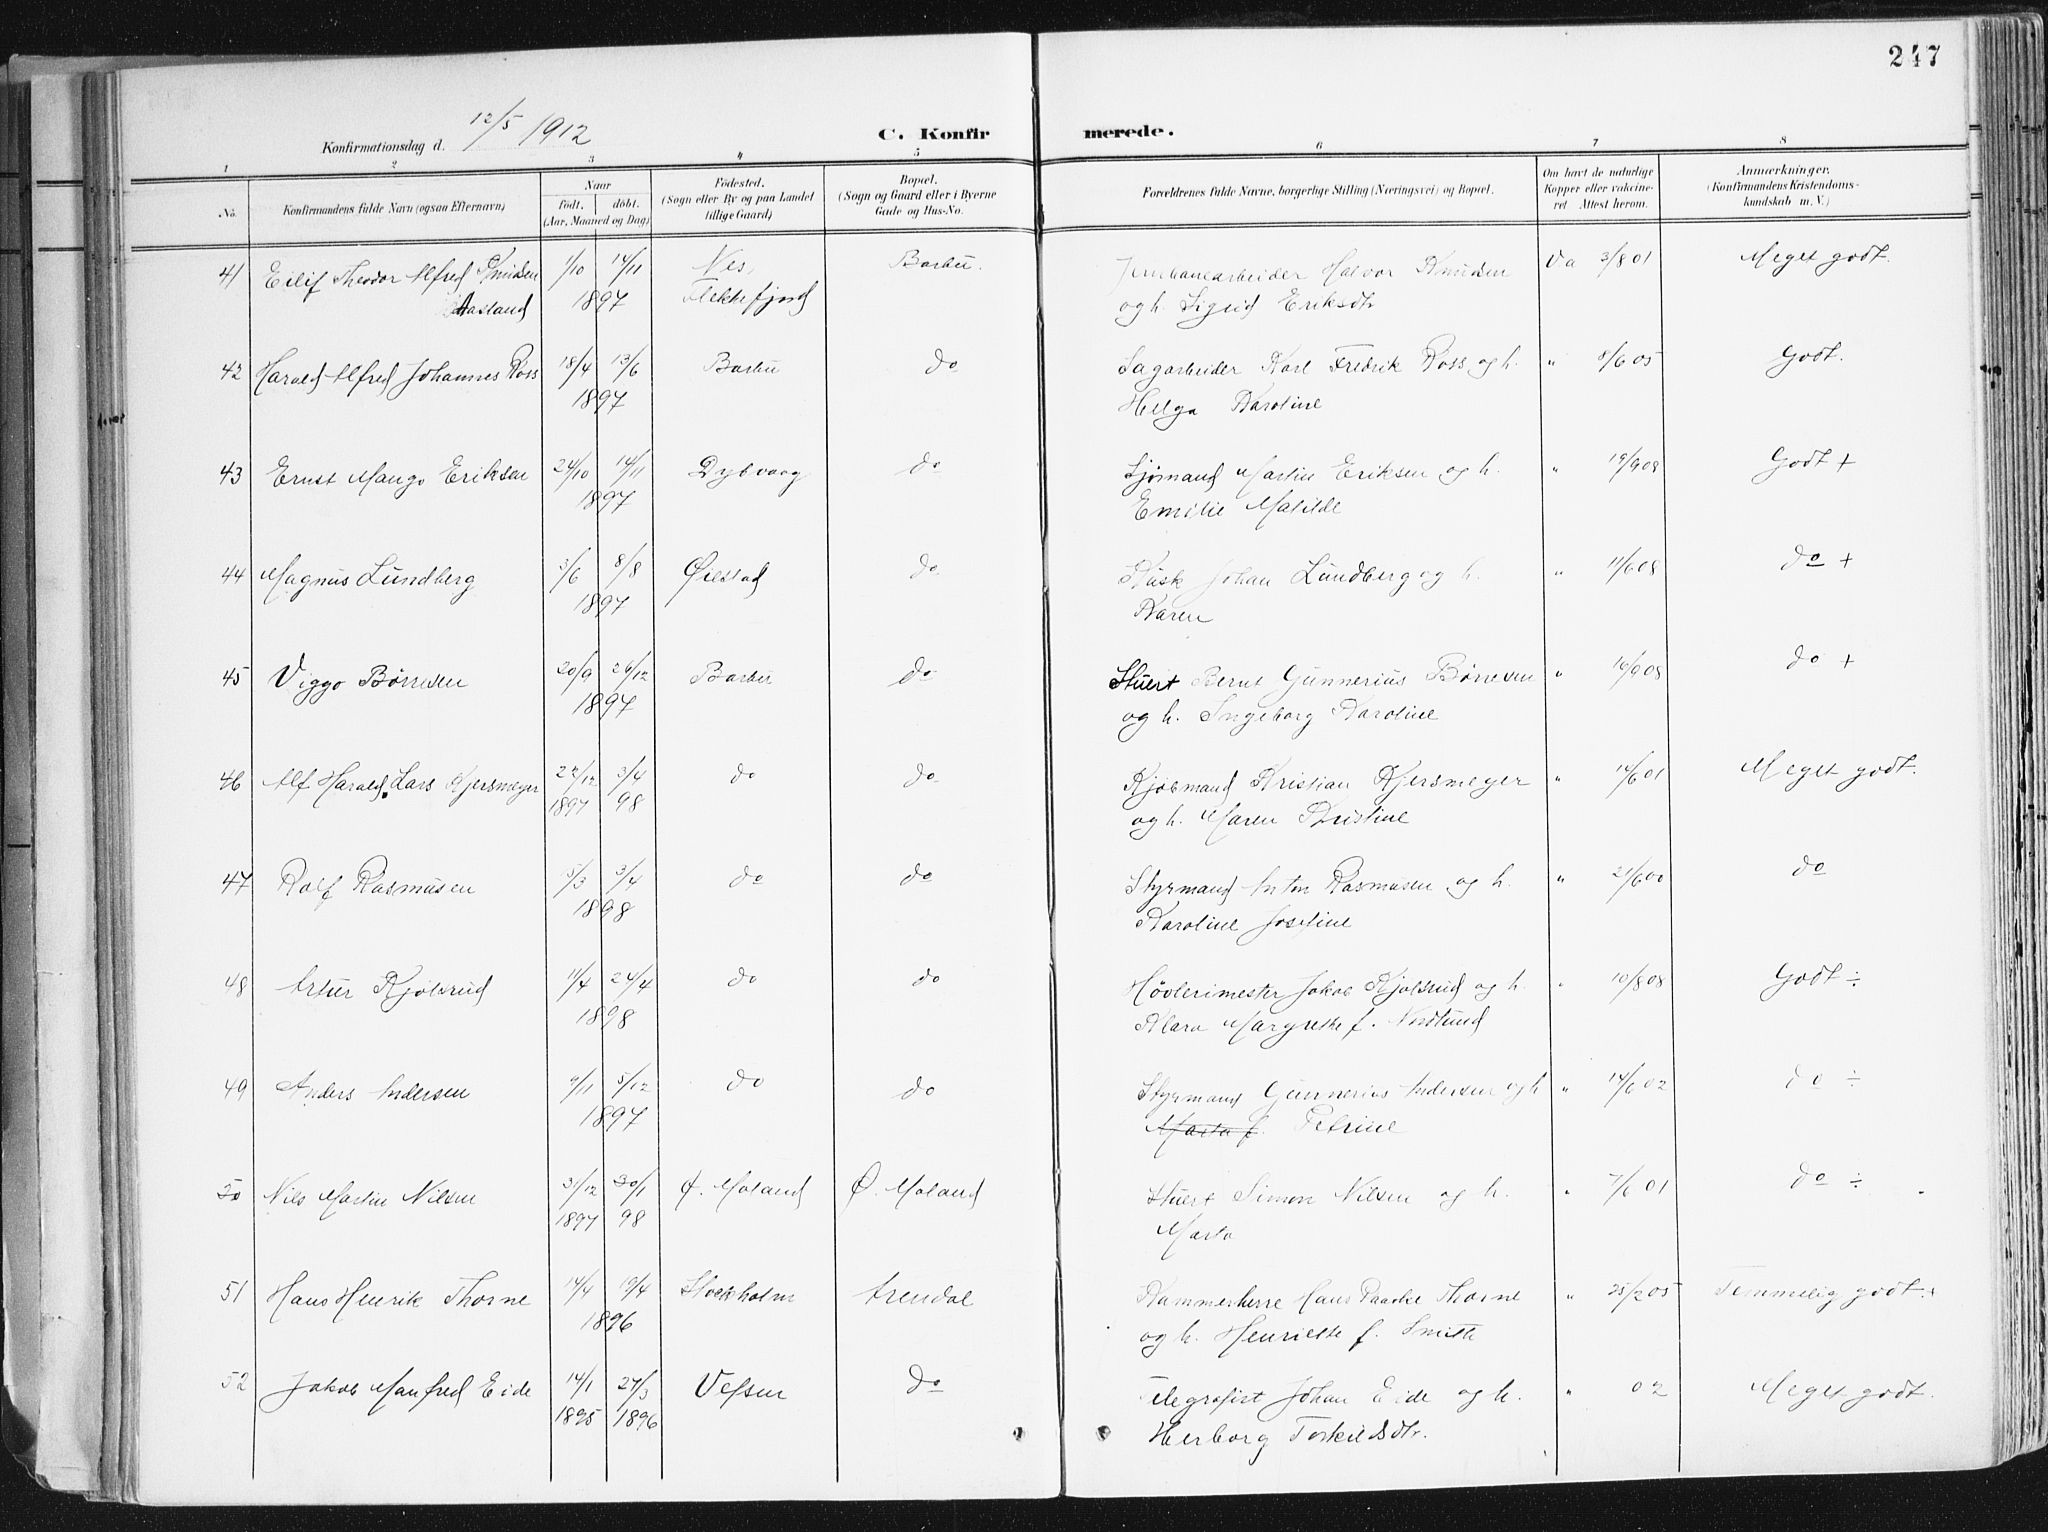 247
Konfirmationsdag d. 12/5 1912
C. Konfirmerede.
1 2 3 4 5 6 7 8
No.
Konfirmandens fulde Navn (ogsaa Efternavn)
Naar
født. døbt.
(Aar, Maaned og Dag)
Fødested.
(Sogn eller By og paa Landet
tillige Gaard)
Bopæl.
(Sogn og Gaard eller i Byerne
Gade og Hus-No.
Forældrenes fulde Navne, borgerlige Stilling (Næringsvei) og Bopæl.
Om havt de naturlige
Kopper eller vakcine-
ret Attest herom.
Anmærkninger.
(Konfirmandens Kristendoms-
kundskab m. V.)
41 Eilif Theodor Alfred Knudsen 1/10 14/11 Nes, Barbu. Jernbanearbeider Halvor Knudsen Va 3/8 01 Meget godt.
Aasland 1897 Flekkefjord og h. Sigrid Eriksdtr
42 Harald Alfred Johannes Ross 18/4 13/6 Barbu do Sagarbeider Karl Fredrik Ross og h. " 8/6 05 Godt.
1897 Helga Karoline
43 Ernst Mango Eriksen 24/10 14/11 Dybvaag do Sjømand Martin Eriksen og h. " 19/9 08 Godt +
1897 Emilie Matilde
44 Magnus Lundberg 3/6 8/8 Øiestad do Kusk Johan Lundberg og h. " 11/6 08 do +
1897 Karen
45 Viggo Børresen 20/9 26/12 Barbu do Stuert Bernt Gunnerius Børresen " 16/9 08 do +
1897 og h. Ingeborg Karoline
46 Alf Harald Lars Kjersmeyer 22/12 3/4 do do Kjøbmand Kristian Kjersmeyer " 14/6 01 Meget godt.
1897 98 og h. Maren Kristine
47 Rolf Rasmusen 5/3 3/4 do do Styrmand Anton Rasmusen og h. " 21/6 00 do
1898 Karoline Josefine
48 Artur Kjølsrud 11/4 24/4 do do Høvlerimester Jakob Kjølsrud og h. " 10/8 08 Godt ÷
1898 Klara Margrethe f. Nordlund
49 Anders Andersen 9/11 5/12 do do Styrmand Gunnerius Andersen og h " 14/6 02 do ÷
1897 Marta f. Petrine
50 Nils Martin Nilsen 31/12 30/1 Ø. Moland Ø. Moland Stuert Simon Nilsen og h. " 7/6 01 do ÷
1897 98 Marta
51 Hans Henrik Thorne 14/4 19/4 Stockholm Arendal Kammerherre Hans Paaske Thorne " 25/2 05 Temmelig godt +
1896 og h. Henriette f. Smith
52 Jakob Manfred Eide 14/1 27/3 Vefsen do Telegrafist Johan Eide og h. " 02 Meget godt.
1895 1896 Herborg Torkildsdtr.